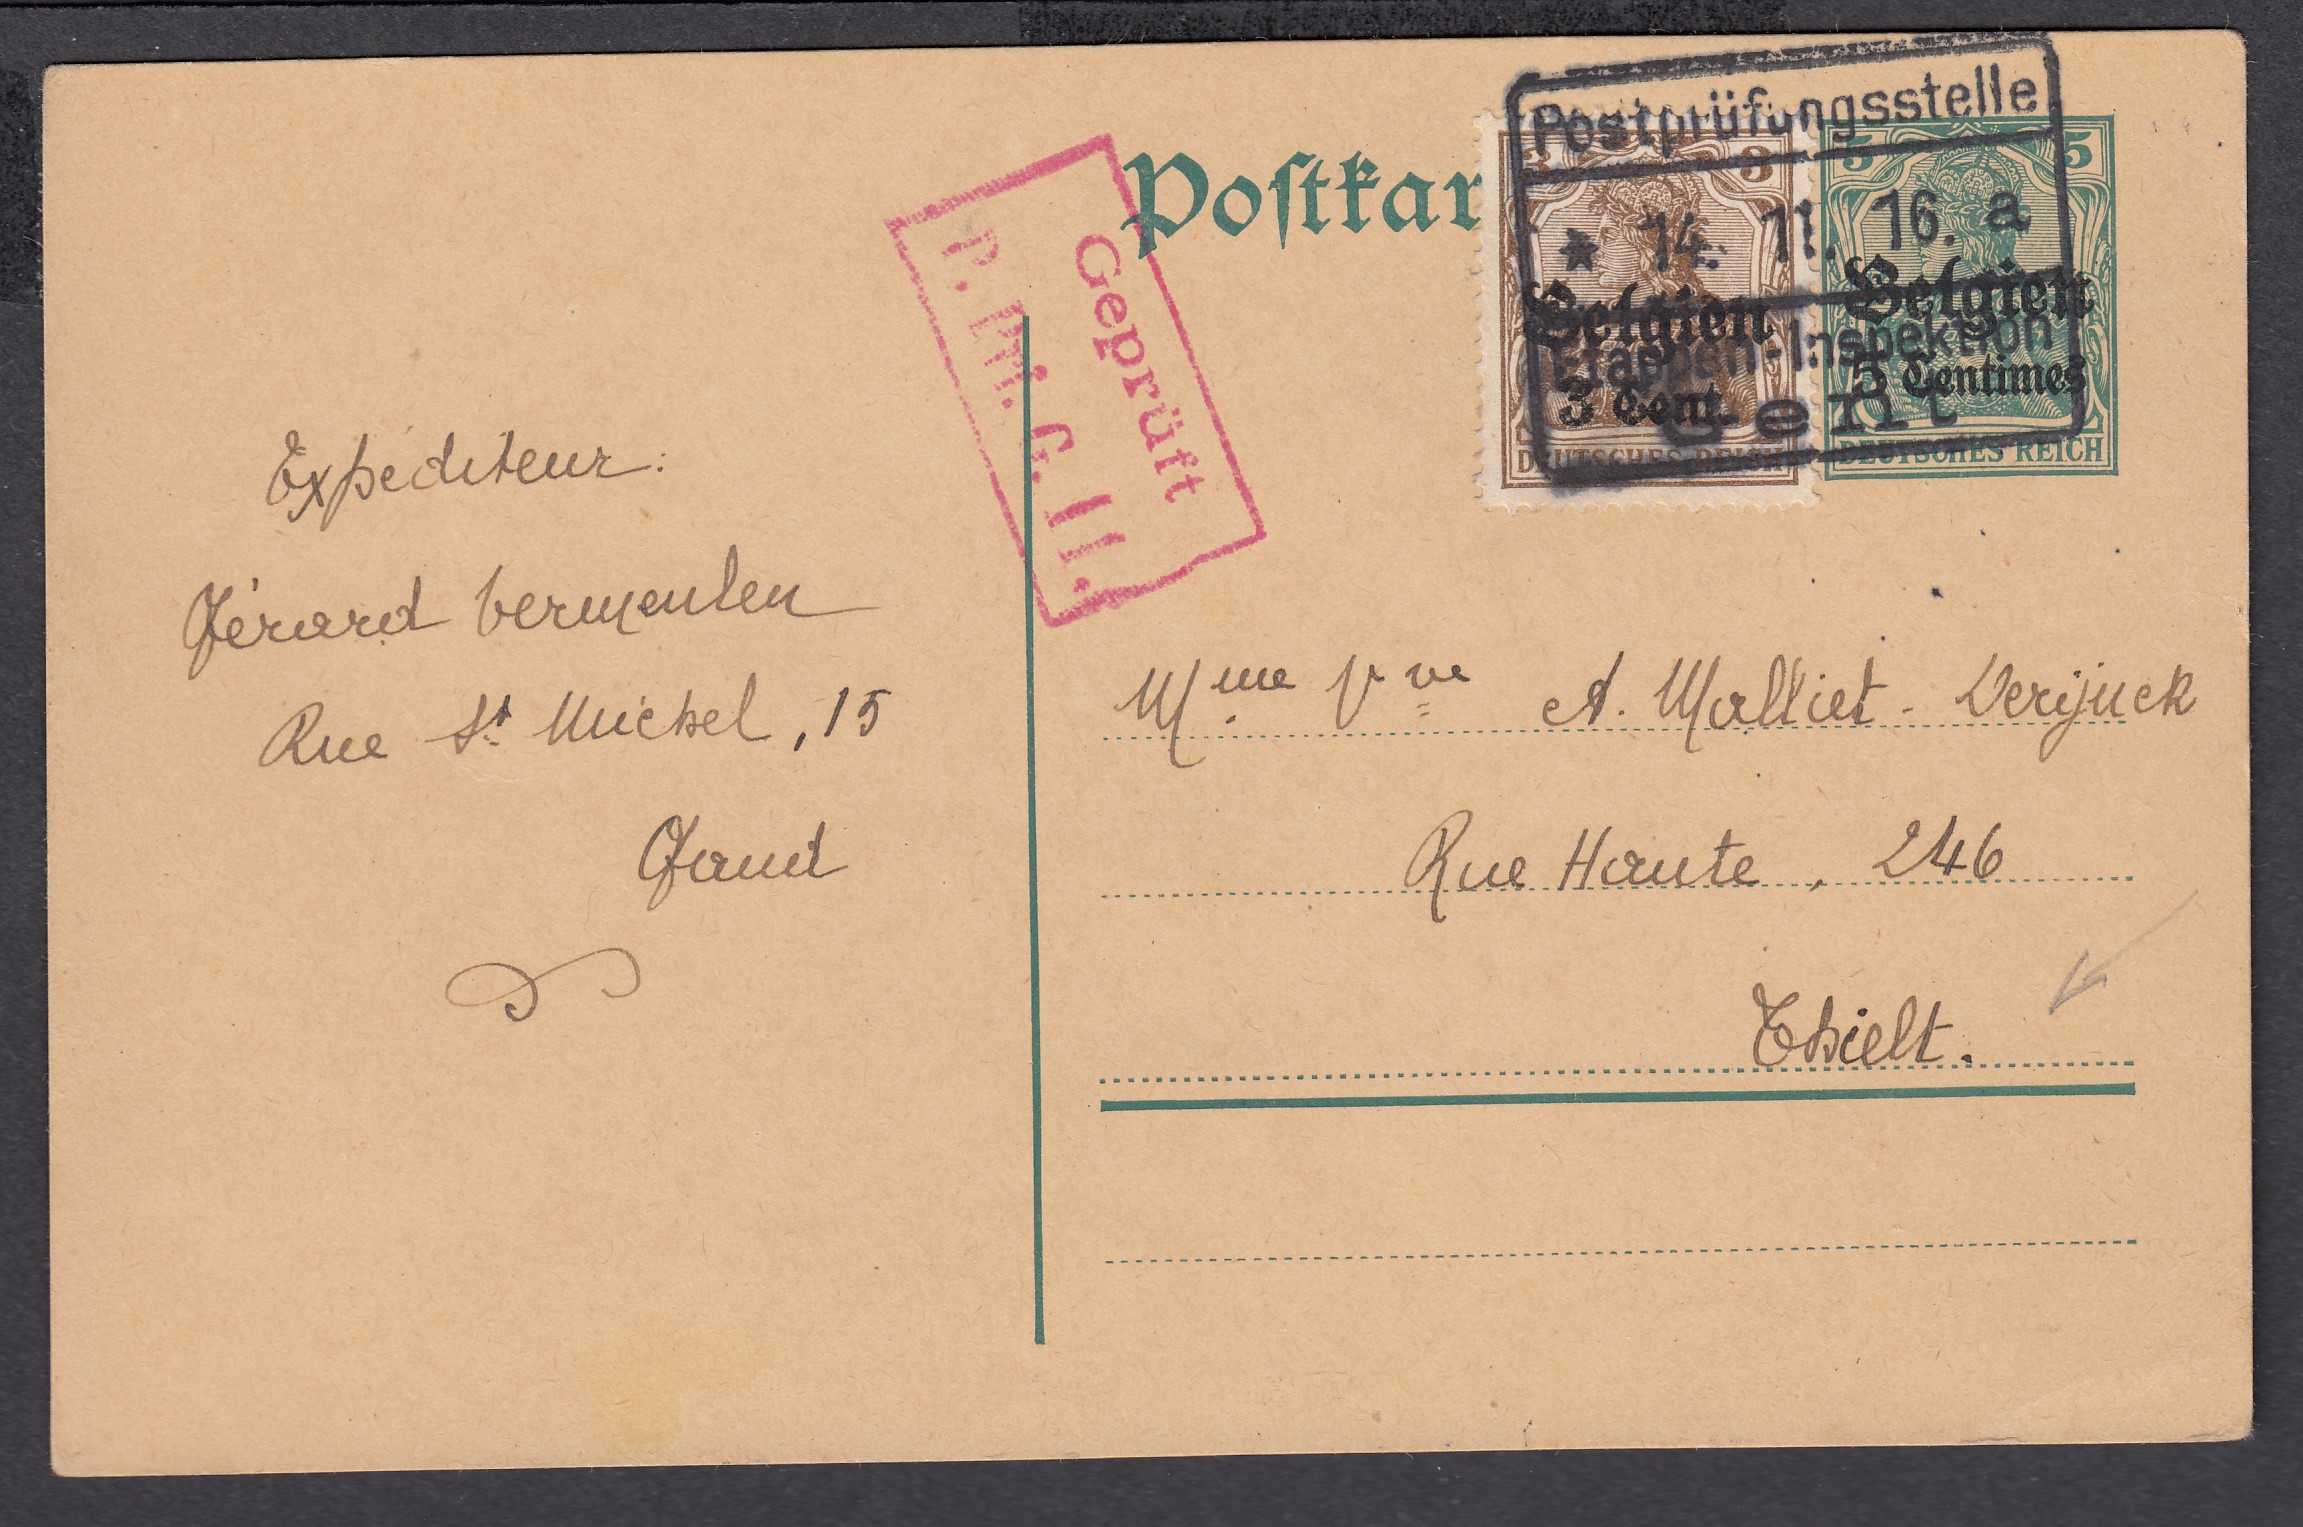 Postkar
Geprüft
P. M. G. II.
Postprüfungsstelle
* 14. 11. 16. a
Etappen-Inspektion
Gent
3
Belgien
3 Cent.
DEUTSCHES REICH
5 5
Belgien
5 Centimes
DEUTSCHES REICH
Expéditeur:
Gérard Vermeulen
Rue St Michel, 15
Gand
Mme Vve A. Malliet-Verijnck
Rue Haute, 246
Thielt.